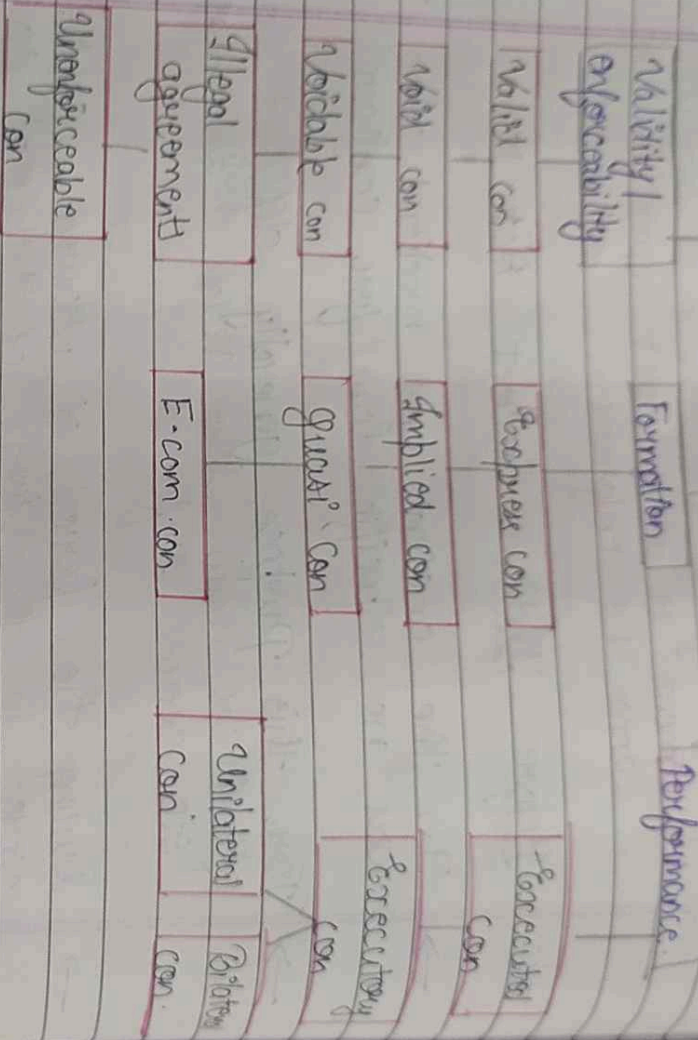 Validity/
enforceability
Valid con
Void con
Voidable con
Illegal
agreements
Unenforceable
con
Formation
Express con
Implied con
quasi con
E-com. con
Performance
Executed
con
Executory
con
Unilateral
con.
Bilater
con.